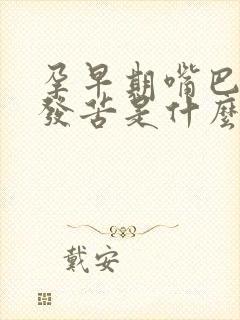 孕早期嘴巴
發苦是什麼
戴安